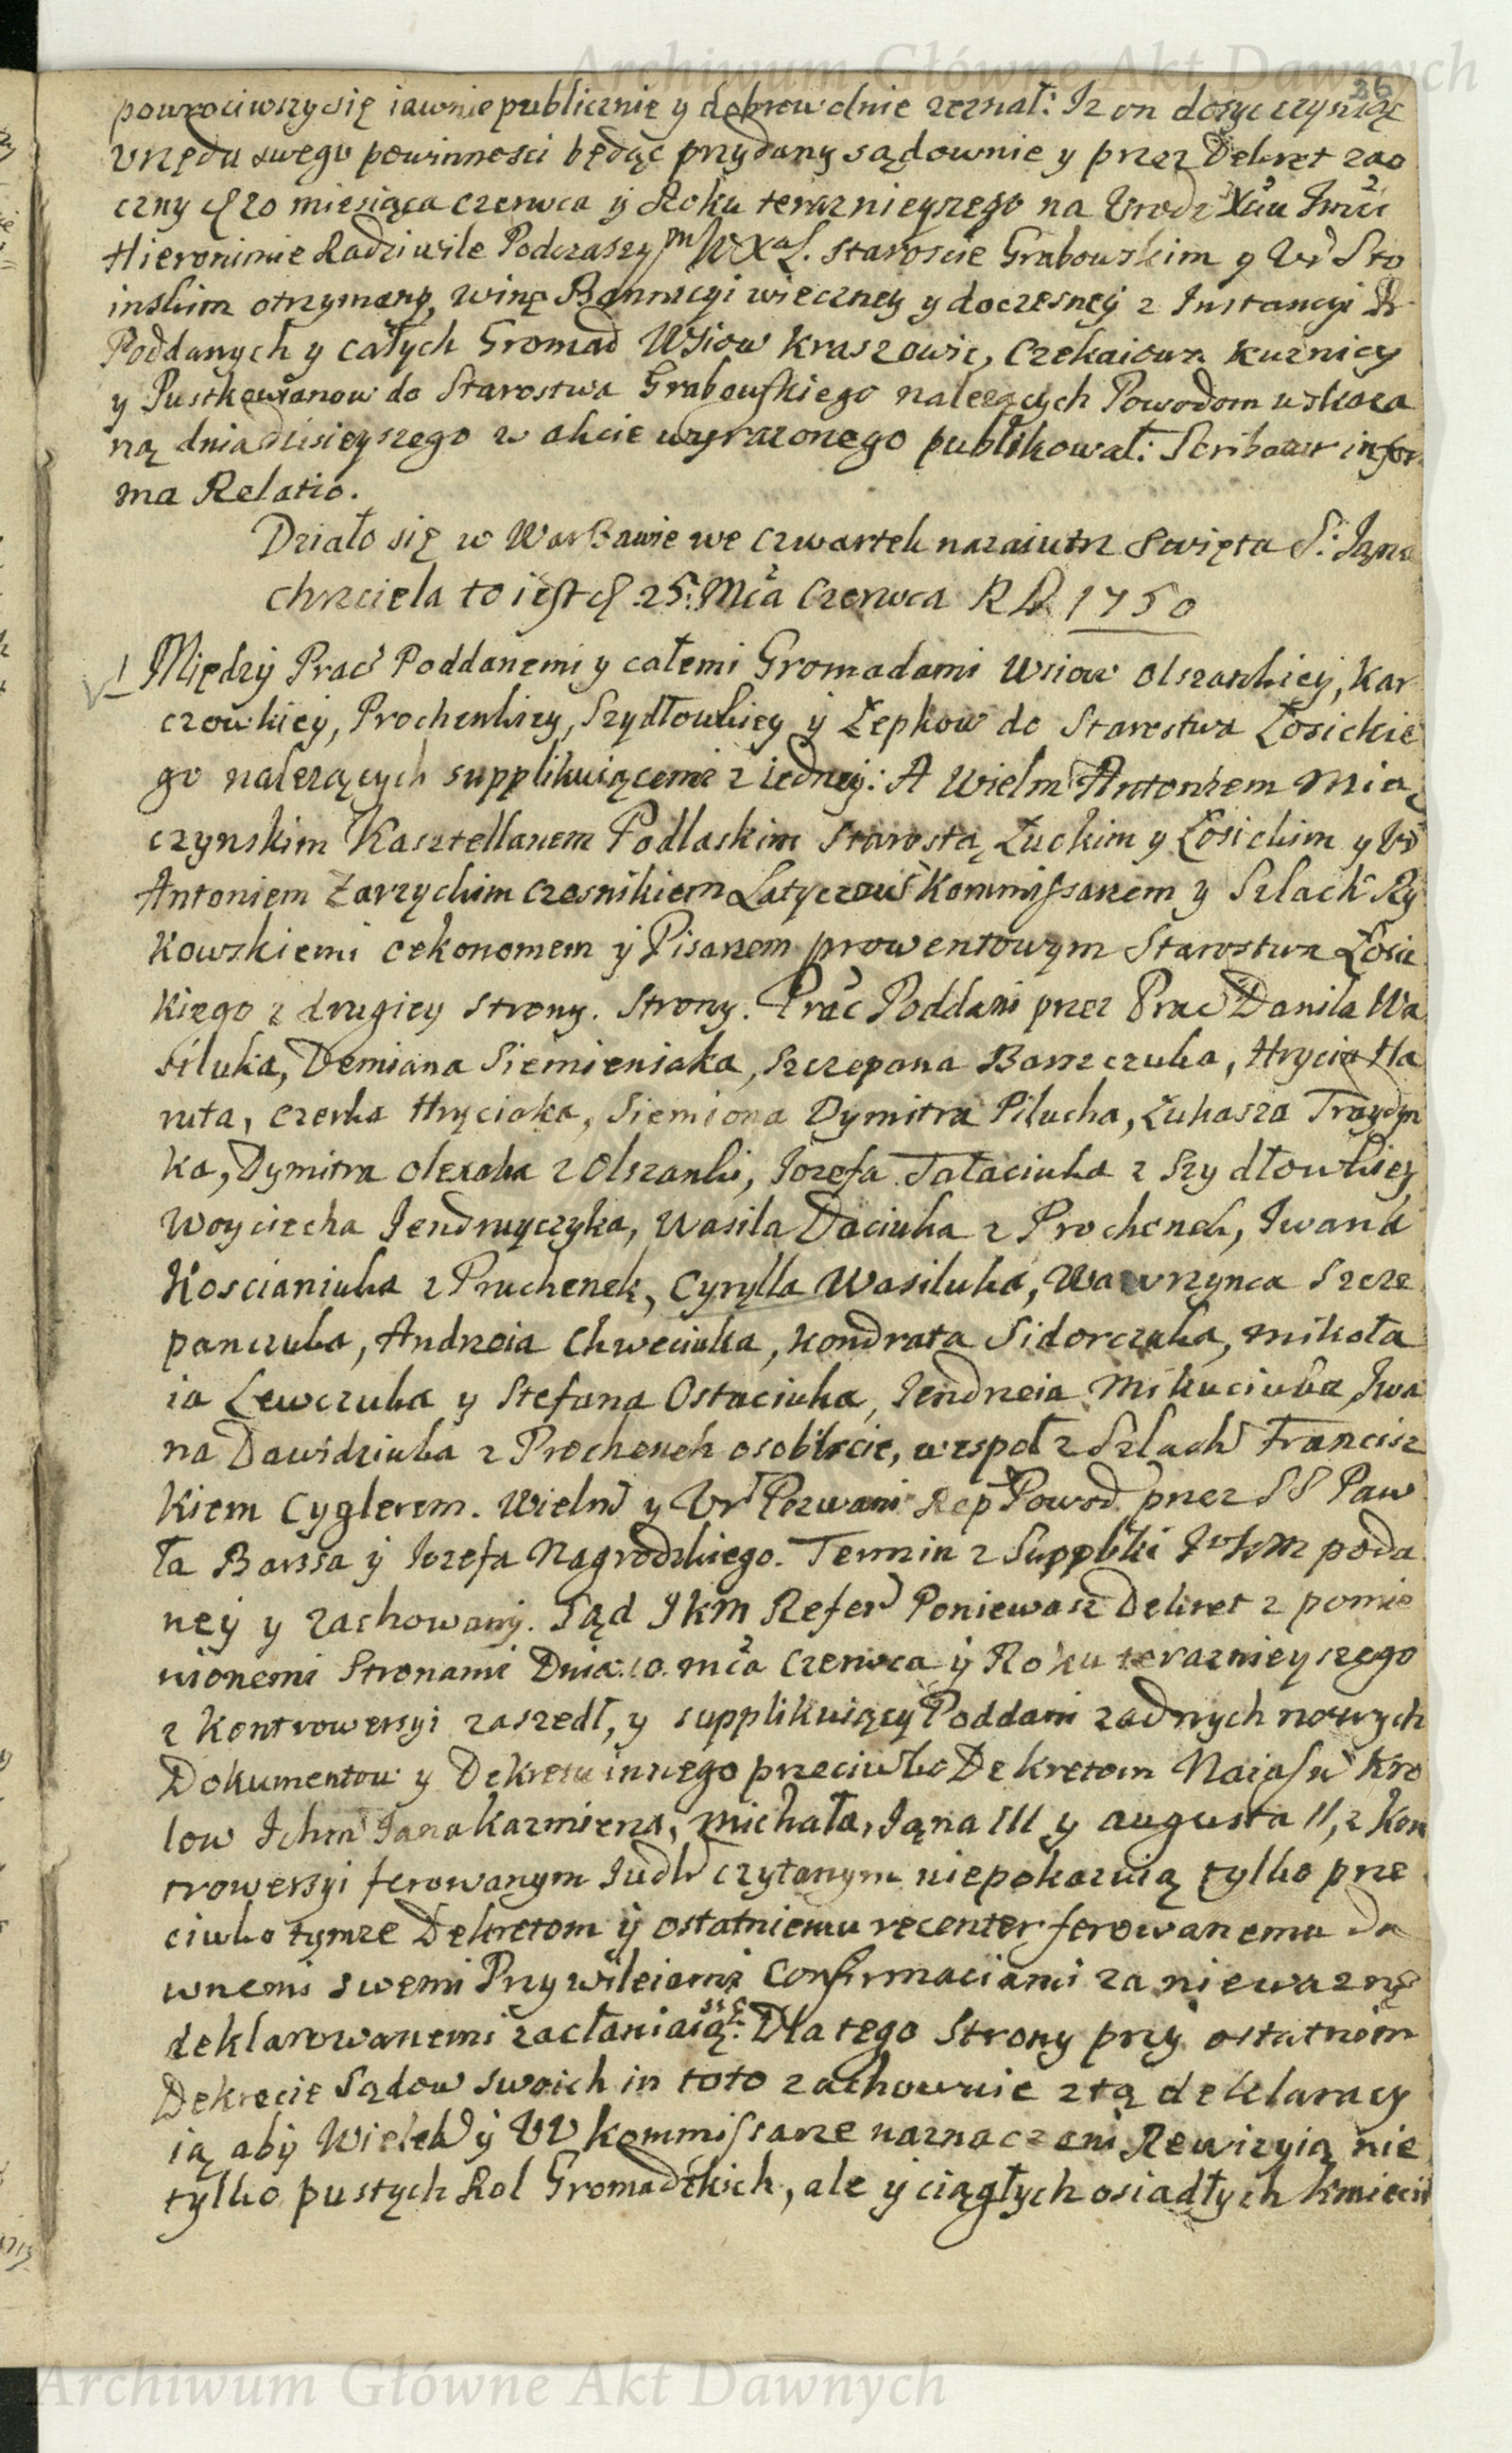 Archiwum Główne Akt Dawnych
26
powrociwszy się iawnie publicznie y dobrowolnie zeznał: Iz on dosyc czyniąc
Vrzędu swego powinnosci będąc przydany sądownie y przez Dekret zao
czny d 20 miesiąca czerwca y Roku teraznieyszego na Vrodz Xciu Imci
Hieronimie Radziwile Podczaszym W X L. staroscie Grabowskim y Vr Sto
inskim otrzymany, winę Bannicyi wieczney y doczesney z Instancyi
Poddanych y całych Gromad Wsiow Kraszowic, Czekaiowa Kuznicy
y Pustkowianow do Starostwa Grabowskiego nalezących Powodom wskaza
ną dnia dzisieyszego w akcie wyrazonego publikował: Scribatur in for
ma Relatio.
Działo się w Warszawie we czwartek nazaiutrz swięta S: Jana
chrzciela to iest d 25. Mca Czerwca R P 1750
Między Prac Poddanemi y całemi Gromadami Wsiow Olszankiey, Kar
czowkiey, Prochenkiey, Szydłowkiey y Łepkow do Starostwa Łosickie
go nalezących supplikuiącemi z iedney: A Wielm Antonim Mią
czynskim Kasztellanem Podlaskim Starostą Łuckim y Łosickim y Vr
Antoniem Zarzyckim czesnikiem Latyczows Kommissarzem y Szlach Ry
kowskiemi oekonomem y Pisarzem prowentowym Starostwa Łosic
kiego z drugiey strony. Strony. Prac Poddani przez Prac Danila Wa
siluka, Demiana Siemieniaka, Szczepana Barszczuka, Hrycia Ha
ruta, Czerka Hryciaka, Siemiona Dymitra Pilucha, Łukasza Traydyn
ka, Dymitra Olexaka z Olszanki, Jozefa Tałaciuka z Szydłowkiey
Woyciecha Jendruyczyka, Wasila Daciuka z Prochenek, Iwana
Koscianiuka z Pruchenek, Cyrylla Wasiluka, Wawrzynca Szcze
panczuka, Andrzeia Chweciuka, Kondrata Sidorczuka, Mikoła
ia Lewczuka y Stefana Ostaciuka, Jendrzeia Mikuciuka, Iwa
na Dawidziuka z Prochenek osobiscie, wespoł z Szlach Francisz
kiem Cyglerem. Wielm y Vr Pozwani Rep Powod przez SS Paw
ła Barssa y Jozefa Nagrodzkiego. Termin z Suppliki JKM poda
ney y zachowany. Sąd JKM Refer Poniewasz Dekret z pomie
nionemi Stronami Dnia 10 mca Czerwca y Roku teraznieyszego
z Kontrowersyi zaszedł, y supplikuiący Poddani zadnych nowych
Dokumentow y Dekretu innego przeciwko Dekretom Naiasn Kro
low Ichm Jana Kazmierza, Michała, Jana III y Augusta II, z Kon
trowersyi ferowanym Judh czytanym niepokazuią tylko prze
ciwko tymze Dekretom y ostatniemu recenter ferowanemu da
wnemi swemi Przywileiami Confirmaciami za niewazne
deklarowanemi zasłaniaią się. Dla tego Strony przy ostatnim
Dekrecie Sądow swoich in toto zachownie z tą deklaracy
ią aby Wieleb y VV kommissarze naznaczeni Rewizyią nie
tylko pustych Rol Gromadzkich, ale y ciągłych osiadłych Kmieci
Archiwum Główne Akt Dawnych